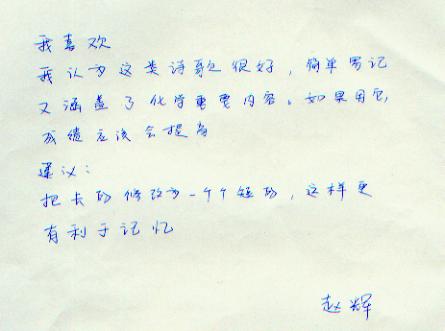 我喜欢
我认为这类诗歌很好，简单易记
又涵盖了化学重要内容。如果用它,
成绩应该会提高
建议：
把长的修改为一个个短的，这样更
有利于记忆
赵辉